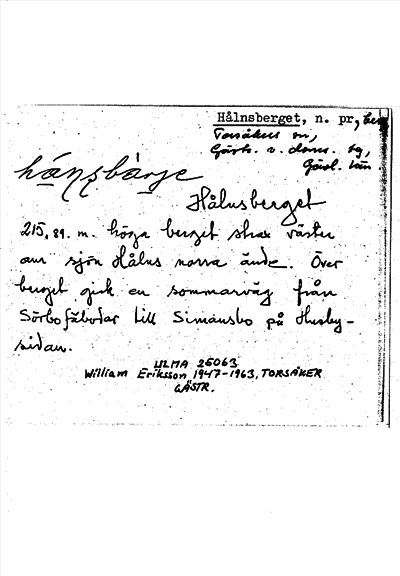 Hålnsberget, n. pr, berg
Torsåkers sn,
Gästr. v. doms. tg,
Gävl. län
hánsbàrje
Hålnsberget
215,89. m. höga berget strax väster
om sjön Hålns norra ände. Över
berget gick en sommarväg från
Sörbo fäbodar till Simansbo på Husby-
sidan.
ULMA 25063
William Eriksson 1947-1963, TORSÅKER
GÄSTR.